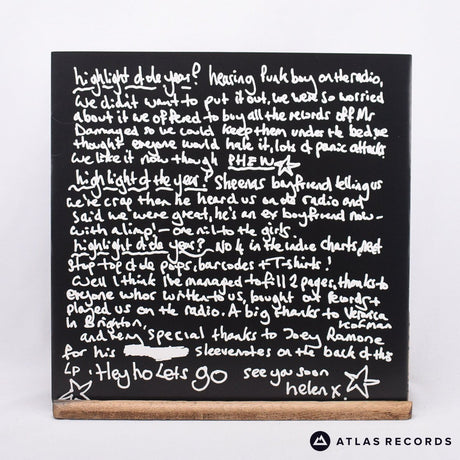 highlight of de year? hearing Punk boy on the radio,
we didn't want to put it out, we were so worried
about it we offered to buy all the records off Mr
Damaged so we could keep them under the bed, we
thought everyone would hate it, lots of panic attacks.
we like it now though PHEW
highlight of the year? Sheenas boyfriend telling us
we're crap then he heard us on de radio and
said we were great, he's an ex boyfriend now -
with a limp! - one nil to the girls.
highlight of de year? - No 4 in the indie charts, next
stop top of de pops, barcodes + T-shirts!
Well I think I've managed to fill 2 pages, thanks to
everyone whos written to us, bought our records +
played us on the radio. A big thanks to Veronica
Kofman
in Brighton,
and very special thanks to Joey Ramone
for his sleevenotes on the back of this
LP. Hey ho Lets go see you soon
helen x.
ATLAS RECORDS